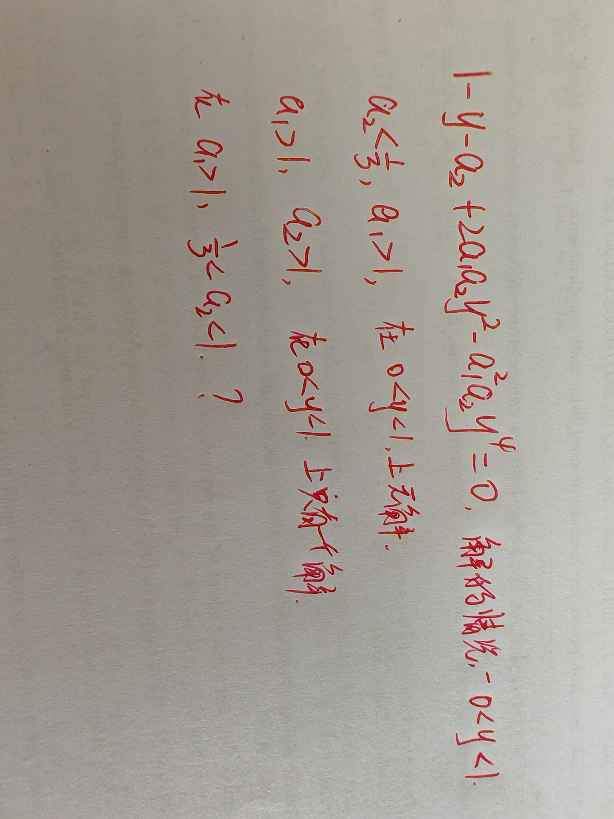 1-y-a₂+2a₁a₂y²-a₁²a₂y⁴=0, 解的情况, 0<y<1.
a₂<1/3, a₁>1, 在0<y<1,上无解.
a₁>1, a₂>1, 在0<y<1.上只有个解.
在 a₁>1, 1/3<a₂<1. ?